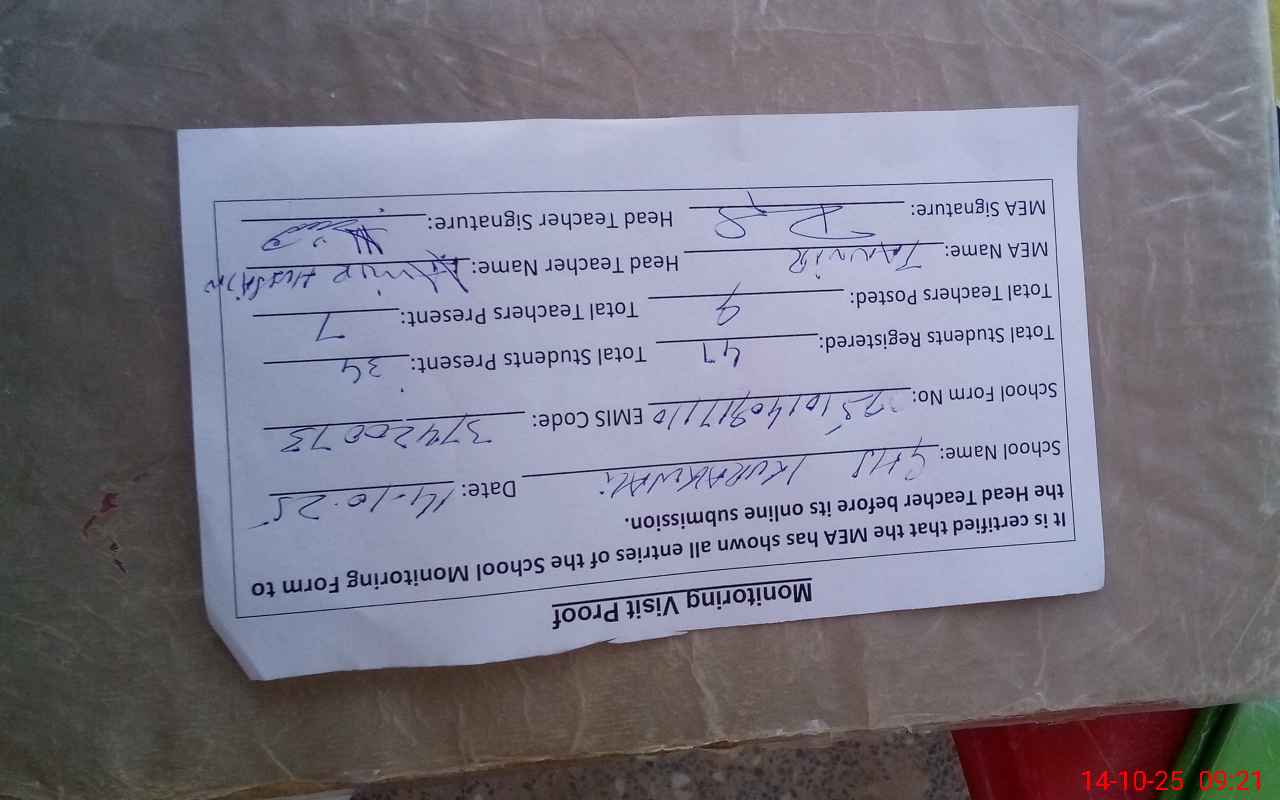 Monitoring Visit Proof
It is certified that the MEA has shown all entries of the School Monitoring Form to
the Head Teacher before its online submission.
School Name: GHS Date: 14-10-25
School Form No: EMIS Code: 37420073
Total Students Registered: 47 Total Students Present: 34
Total Teachers Posted: 9 Total Teachers Present: 7
MEA Name: TANVIR Head Teacher Name: Amir Hussain
MEA Signature: Head Teacher Signature:
14-10-25 09:21